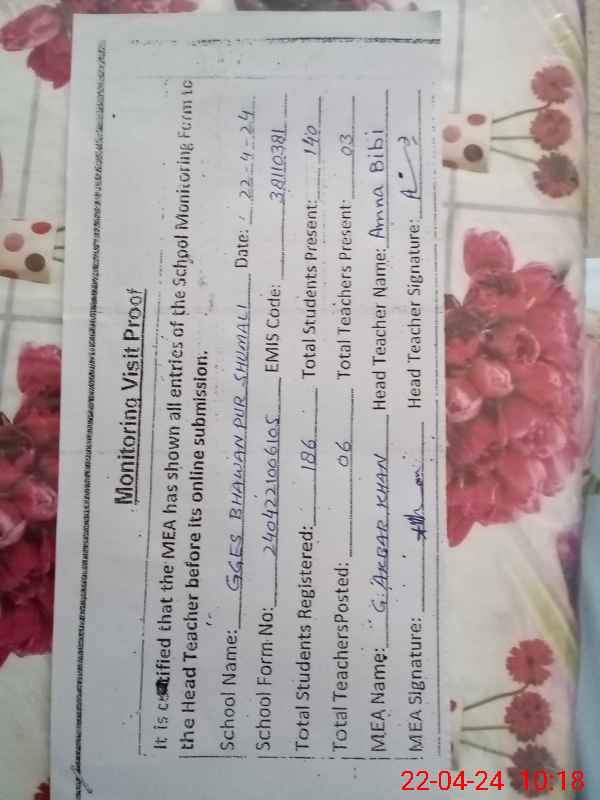 Monitoring Visit Proof
It is certified that the MEA has shown all entries of the School Monitoring Form to
the Head Teacher before its online submission.
School Name: GGES BHAWANPUR SHUMALI Date: 22-4-24
School Form No: 2404221006105 EMIS Code: 38110381
Total Students Registered: 186 Total Students Present: 140
Total TeachersPosted: 06 Total Teachers Present: 03
MEA Name: G. AKBAR KHAN Head Teacher Name: Amna Bibi
MEA Signature: Head Teacher Signature:
22-04-24 10:18